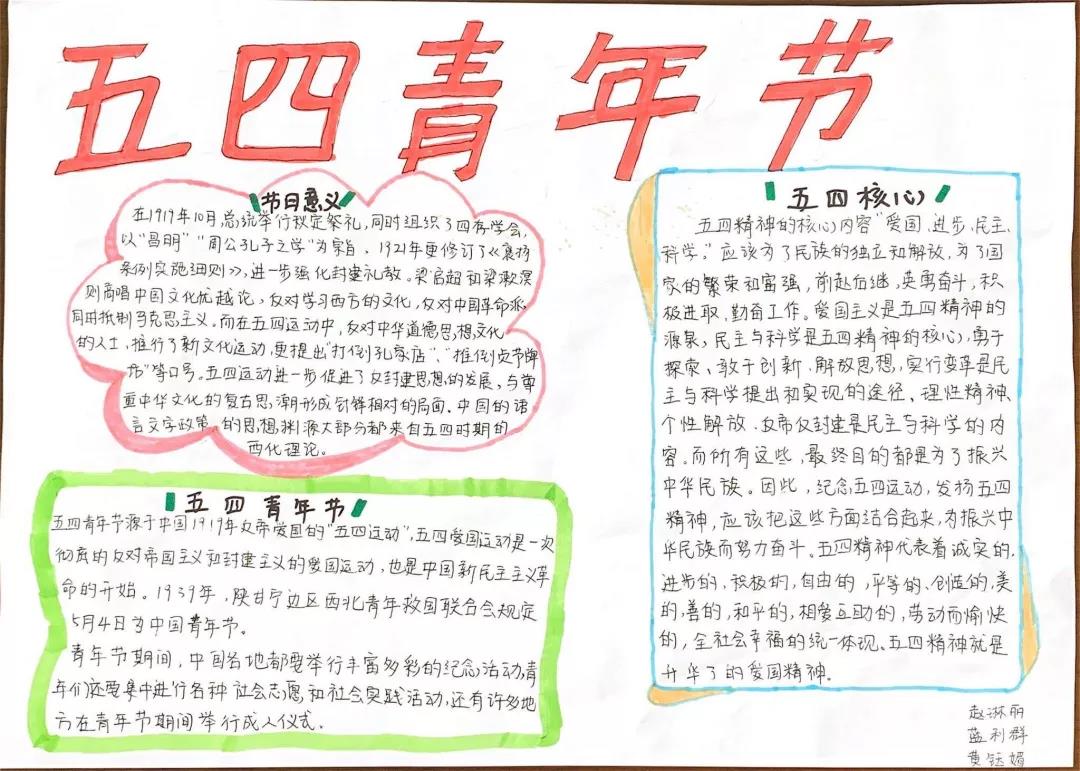 五四青年节
节日意义
在1919年10月总统举行秋定祭礼,同时组织了四存学会,
以“昌明”“周公孔子之学”为宗旨、1921年更修订了《褒扬
条例实施细则》,进一步强化封建礼教。梁启超和梁漱溟
则高唱中国文化优越论,反对学习西方的文化,反对中国革命派,
同时抵制马克思主义。而在五四运动中,反对中华道德思想文化
的人士,推行了新文化运动,更提出“打倒孔家店”、“推倒贞节牌
坊”等口号。五四运动进一步促进了反封建思想的发展,与尊
重中华文化的复古思潮形成针锋相对的局面。中国的语
言文字政策,的思想渊源大部分都来自五四时期的
西化理论。
五四青年节
五四青年节源于中国1919年反帝爱国的“五四运动”,五四爱国运动是一次
彻底的反对帝国主义和封建主义的爱国运动,也是中国新民主主义革
命的开始。1939年,陕甘宁边区西北青年救国联合会规定
5月4日为中国青年节。
青年节期间,中国各地都要举行丰富多彩的纪念活动,青
年们还要集中进行各种社会志愿和社会实践活动,还有许多地
方在青年节期间举行成人仪式。
五四核心
五四精神的核心内容“爱国、进步、民主、
科学。”应该为了民族的独立和解放,为了国
家的繁荣和富强,前赴后继,英勇奋斗,积
极进取,勤奋工作。爱国主义是五四精神的
源泉,民主与科学是五四精神的核心,勇于
探索、敢于创新、解放思想,实行变革是民
主与科学提出和实现的途径、理性精神、
个性解放、反帝反封建是民主与科学的内
容。而所有这些,最终目的都是为了振兴
中华民族。因此,纪念五四运动,发扬五四
精神,应该把这些方面结合起来,为振兴中
华民族而努力奋斗。五四精神代表着诚实的,
进步的,积极的,自由的,平等的、创造的,美
的,善的,和平的,相爱互助的,劳动而愉快
的,全社会幸福的统一体现、五四精神就是
升华了的爱国精神。
赵琳丽
蓝利群
黄钰媚